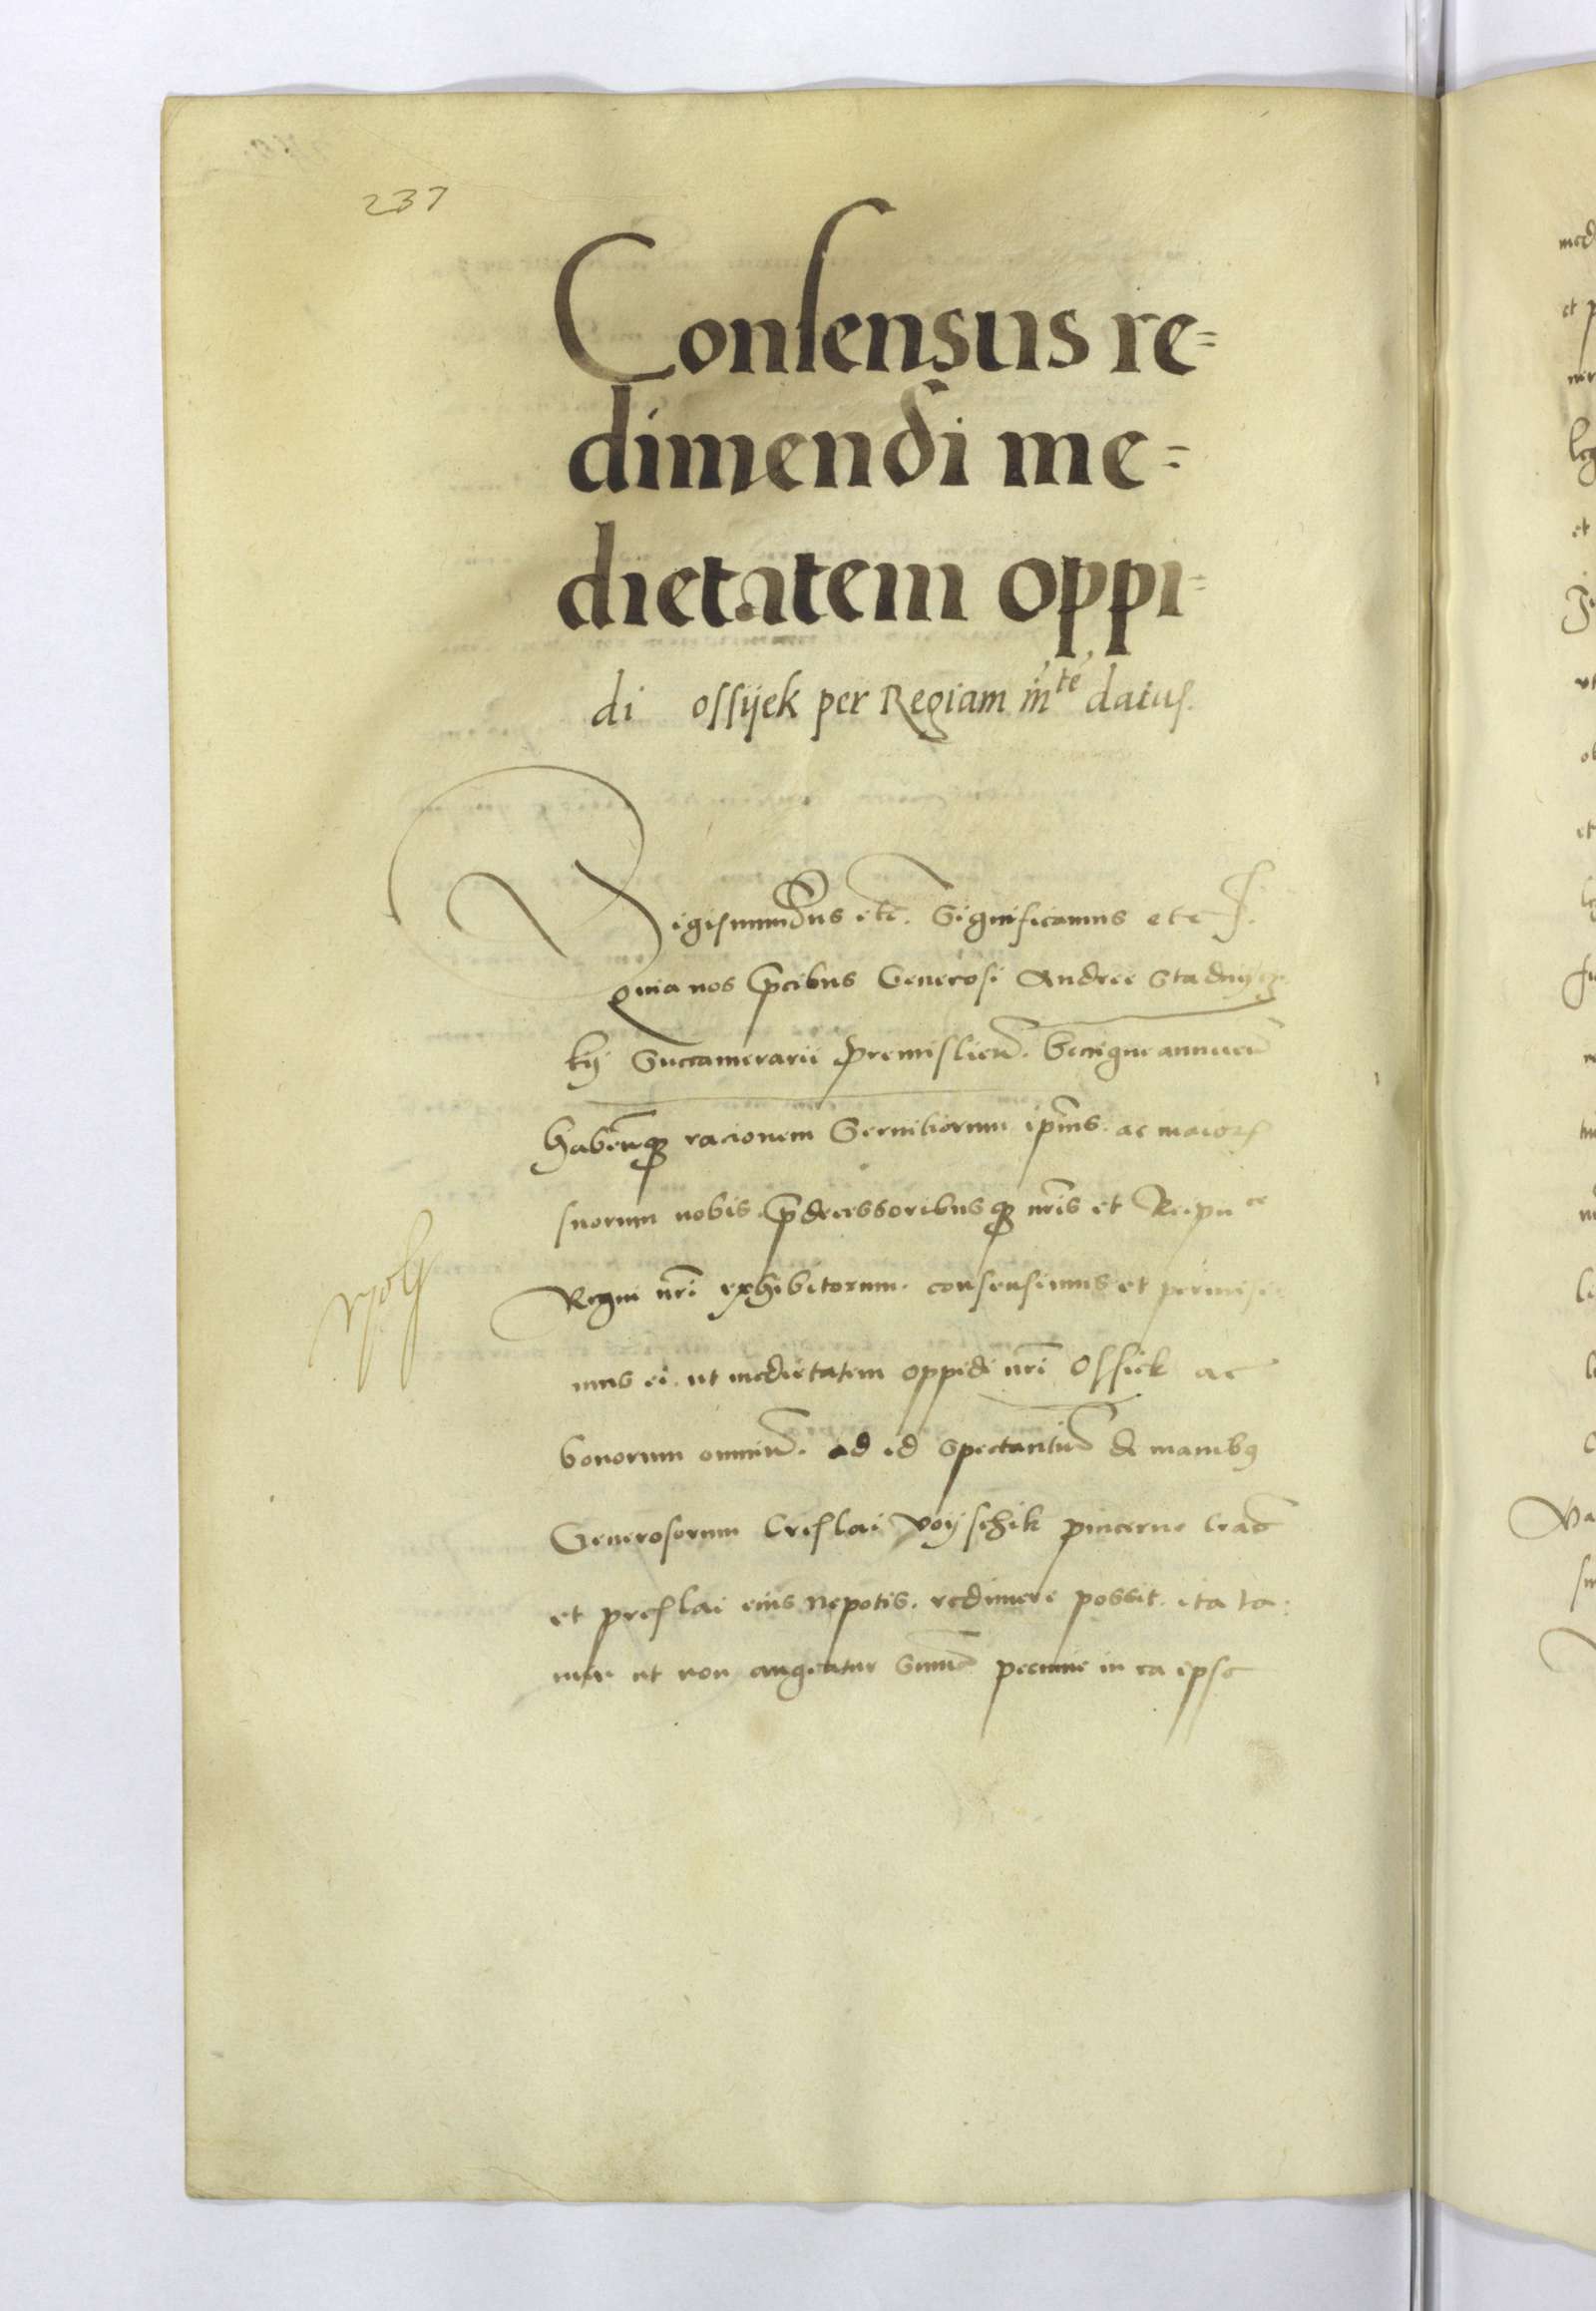 237
Consensus re=
dimendi me=
dietatem oppi=
di ossijek per Regiam mte datus.
Sigismundus etc. Significamus etc.
Quia nos pcibus Generosi Andree Stadnijcz
kij Succamerarii premislien. benigne annuen
habenq racionem Servitiorum ipius. ac maior
suorum nobis. pdecessoribusq nris et Reipuce
Regni nri exhibitorum. consensimus et permisi
mus ei. ut medietatem oppidi nri Ossiek ac
bonorum omniu. ad id spectantiu de manibus
Generosorum Creslai Voijschik pincerne crac
et preslai eius nepotis. redimere possit. ita ta
men ut non augeatur Suma pecunie in ea ipsa